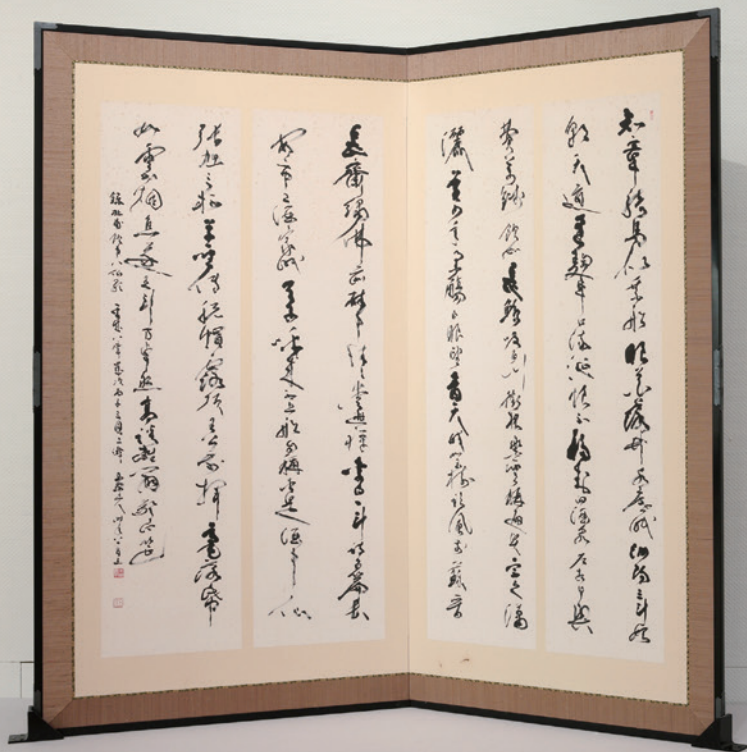 知章騎馬似乘船眼花落井水底眠汝陽三斗始
朝天道逢麴車口流涎恨不移封向酒泉左相日興
費萬錢飲如長鯨吸百川銜杯樂聖稱避賢宗之瀟
灑美少年舉觴白眼望青天皎如玉樹臨風前蘇晉
長齋繡佛前醉中往往愛逃禪李白一斗詩百篇長
安市上酒家眠天子呼來不上船自稱臣是酒中仙
張旭三杯草聖傳脫帽露頂王公前揮毫落紙
如雲煙焦遂五斗方卓然高談雄辯驚四筵
錄杜甫飲中八仙歌 平成八年歲次丙子三月上澣